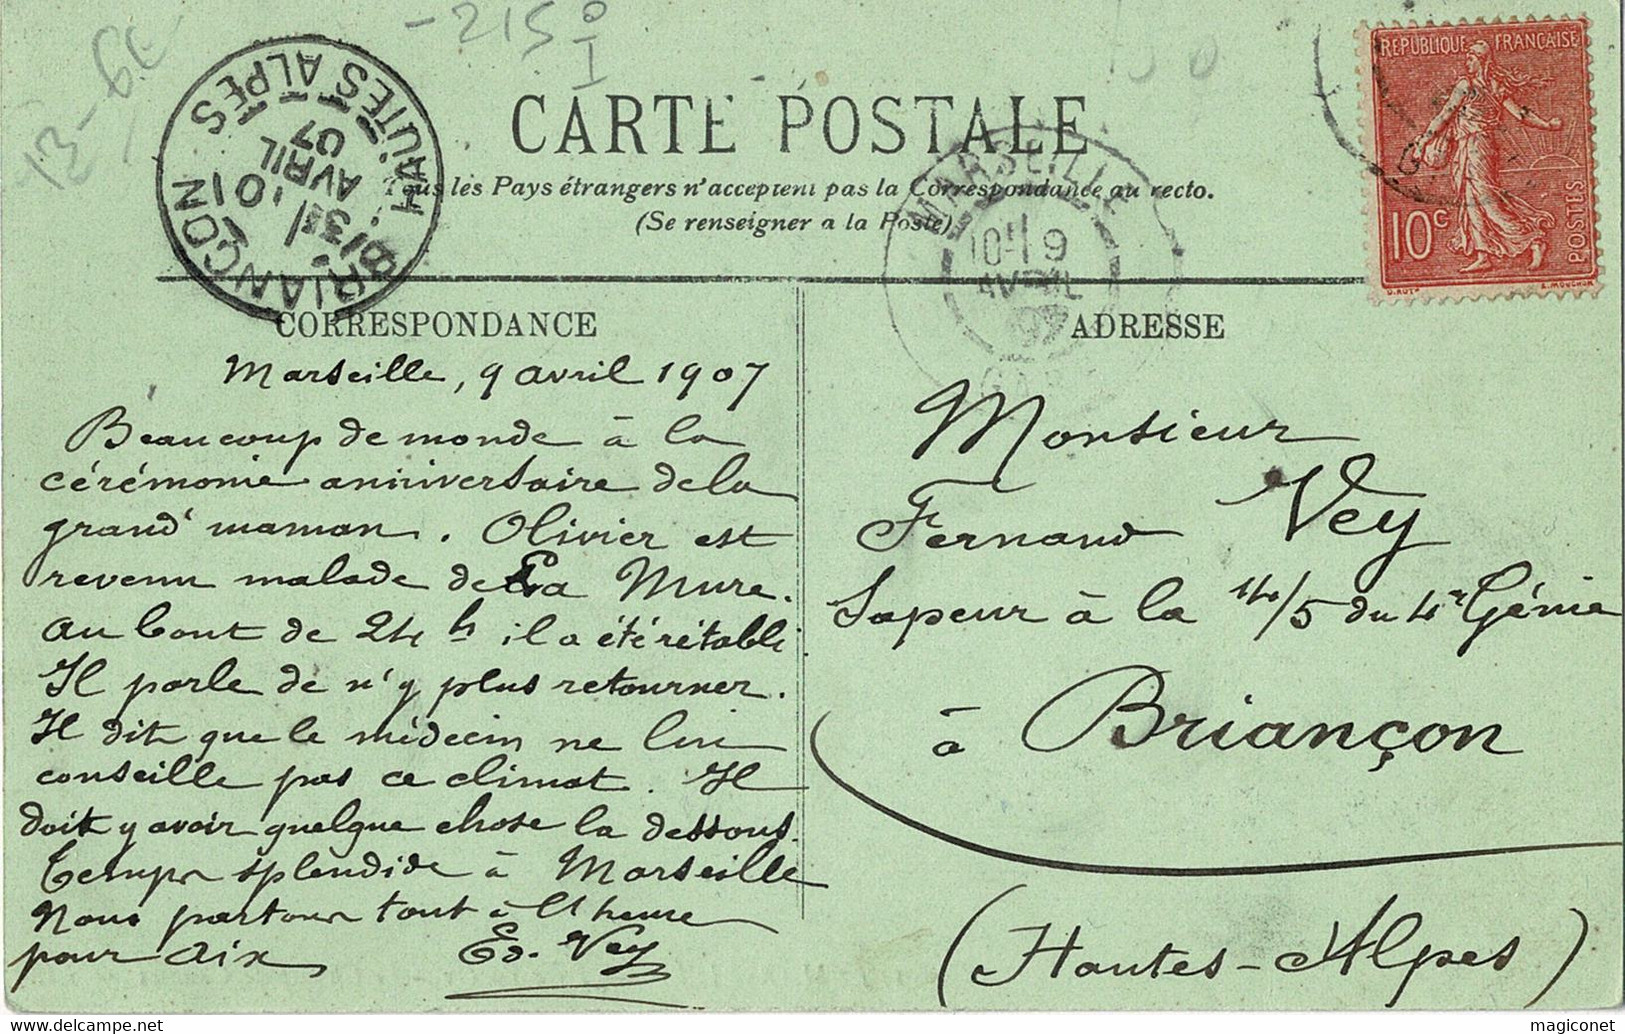 -215
CARTE POSTALE
Tous les Pays étrangers n'acceptent pas la Correspondance au recto.
(Se renseigner a la Poste)
BRIANÇON
HAUTES ALPES
10
AVRIL
07
MARSEILLE
GARE
10 9
AVRIL
07
REPUBLIQUE FRANÇAISE
10c
POSTES
O. ROTY
E. MOUCHON
CORRESPONDANCE
Marseille, 9 avril 1907
Beaucoup de monde à la
cérémonie anniversaire de la
grand' maman. Olivier est
revenu malade de La Mure.
Au bout de 24 h il a été rétabli
Il parle de n'y plus retourner.
Il dit que le médecin ne lui
conseille pas ce climat. Il
doit y avoir quelque chose la dessous.
Temps splendide à Marseille
Nous partons tout à l'heure
pour Aix Ed. Vey
ADRESSE
Monsieur
Fernand Vey
Sapeur à la 14/5 du 4e Génie
à Briançon
(Hautes-Alpes)
magiconet